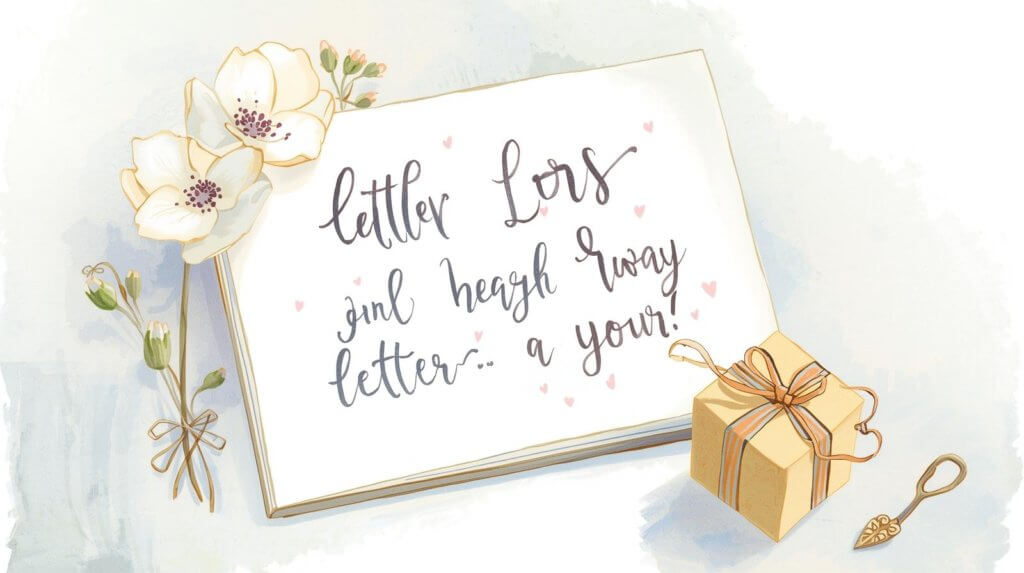 lettler Lors
girl heagh Rway
letter... a your!